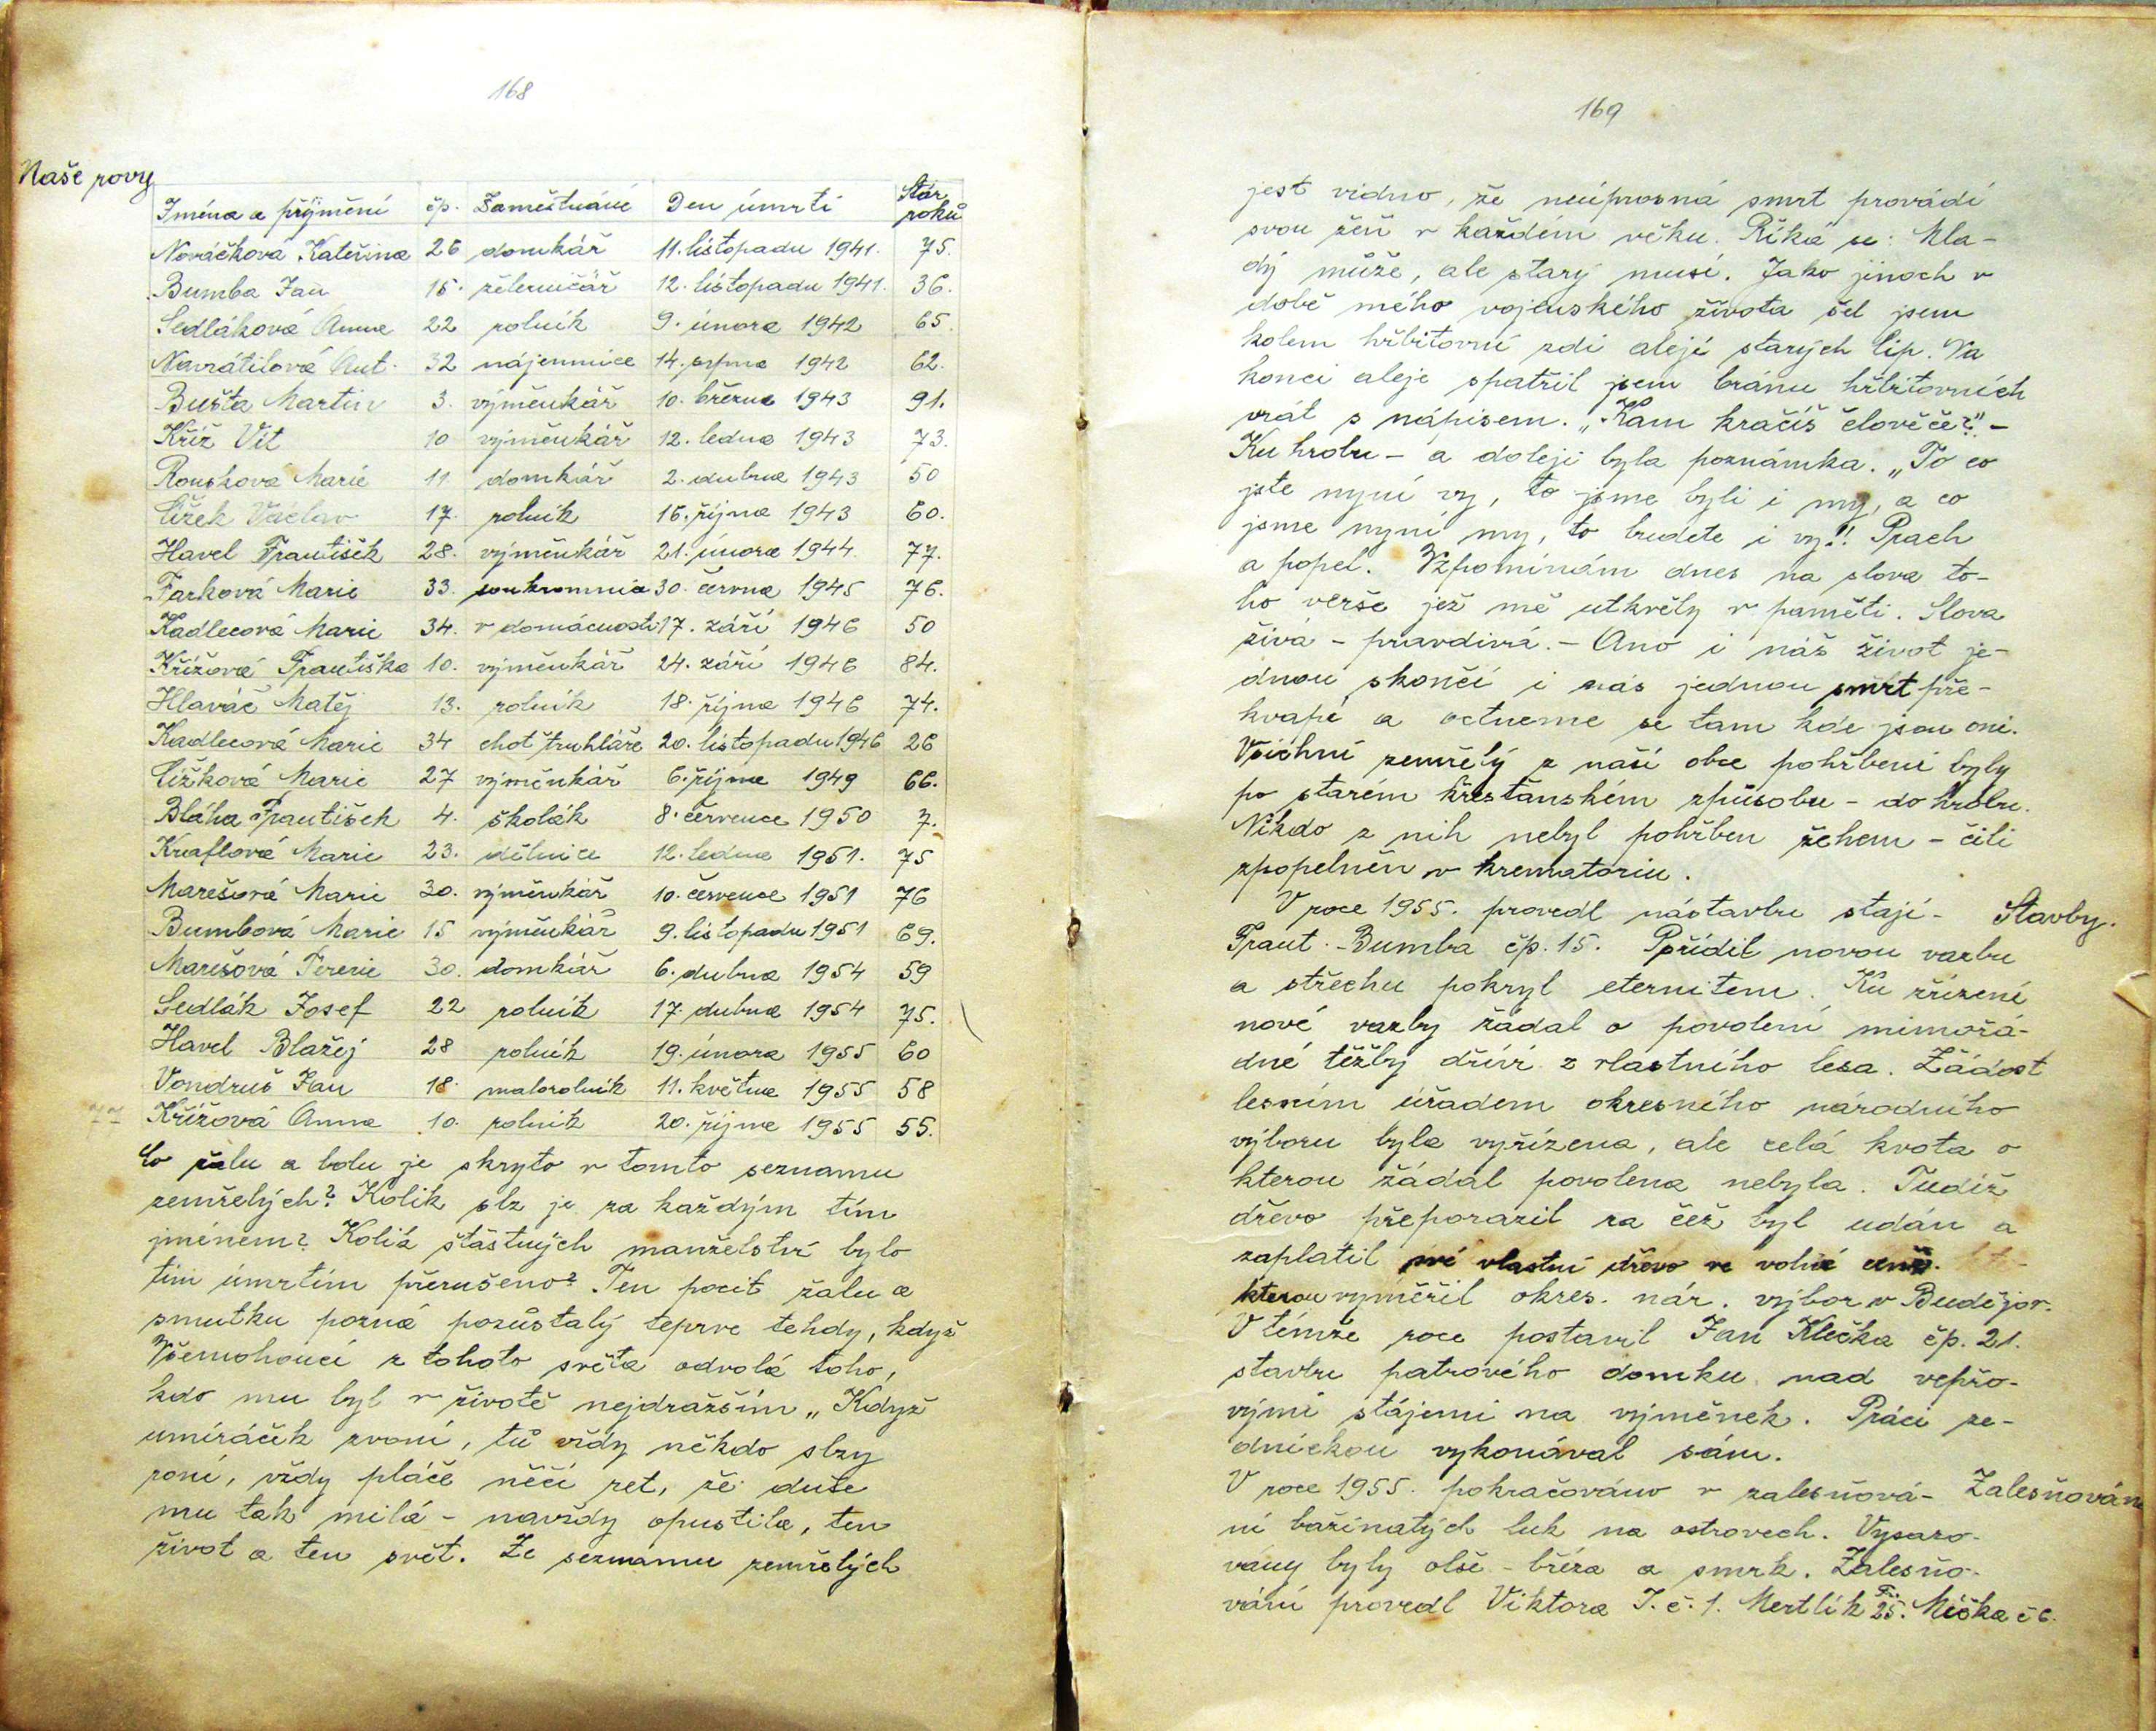 168
Naše rovy
Jména a příjmění čp. Zaměstnání Den úmrtí Stár roků
Nováčková Kateřina 26 domkář 11. listopadu 1941. 75.
Bumba Jan 15. železničář 12. listopadu 1941. 36.
Sedláková Anna 22 rolník 9. února 1942 65.
Navrátilová Ant. 32 nájemnice 14. srpna 1942 62.
Bušta Martin 3. výměnkář 10. března 1943 91.
Kříž Vít 10 výměnkář 12. ledna 1943 73.
Rouskova Marie 11. domkář 2. dubna 1943 50
Čížek Václav 17. rolník 16. října 1943 60.
Havel František 28. výměnkář 21. února 1944. 77.
Farková Marie 33. soukromnice 30. června 1945 76.
Kadlecová Marie 34. v domácnosti 17. září 1946 50
Křížová Františka 10. výměnkář 24. září 1946 84.
Hlaváč Matěj 13. rolník 18. října 1946 74.
Kadlecová Marie 34 choť truhláře 20. listopadu 1946 26
Čížková Marie 27 výměnkář 6. října 1949 66.
Bláha František 4. školák 8. července 1950 7.
Knaflová Marie 23. dělnice 12. ledna 1951. 75
Marešová Marie 30. výměnkář 10. července 1951 76
Bumbová Marie 15 výměnkář 9. listopadu 1951 69.
Marešová Terezie 30. domkář 6. dubna 1954 59
Sedlák Josef 22 rolník 17. dubna 1954 75.
Havel Blažej 28 rolník 19. února 1955 60
Vondruš Jan 18. malorolník 11. května 1955 58
Křížová Anna 10. rolník 20. října 1955 55.
Co žalu a bolu je skryto v tomto seznamu
zemřelých? Kolik slz je za každým tím
jménem? Kolik šťastných manželství bylo
tím úmrtím přerušeno? Ten pocit žalu a
smutku pozná pozůstalý teprve tehdy, když
Všemohoucí z tohoto světa odvolá toho,
kdo mu byl v životě nejdražším „Když
umíráček zvoní, tu vždy někdo slzy
roní, vždy pláče něčí ret, že duše
mu tak milá - navždy opustila, ten
život a ten svět. Ze seznamu zemřelých
169
jest vidno, že neúprosná smrt provádí
svou žeň v každém věku. Říká se: Mla-
dý může, ale starý musí. Jako jinoch v
době mého vojenského života šel jsem
kolem hřbitovní zdi alejí starých lip. Na
konci aleje spatřil jsem bránu hřbitovních
vrát s nápisem. „Kam kráčíš člověče?" -
Ku hrobu - a doleji byla poznámka. „To co
jste nyní vy, to jsme byli i my, a co
jsme nyní my, to budete i vy!! Prach
a popel. Vzpomínám dnes na slova to-
ho verše jež mě utkvěly v paměti. Slova
živá - pravdivá. - Ano i náš život je-
dnou skončí i nás jednou smrt pře-
kvapí a octneme se tam kde jsou oni.
Všichni zemřelý z naší obce pohřbeni byly
po starém křesťanském způsobu - do hrobu.
Nikdo z nih nebyl pohřben žehem - čili
zpopelněn v krematoriu.
V roce 1955. provedl nástavbu stájí- Stavby.
Frant. Bumba čp. 15. Pořídil novou vazbu
a střechu pokryl eternitem. Ku zřízení
nové vazby žádal o povolení mimořá-
dné těžby dříví z vlastního lesa. Žádost
lesním úřadem okresního národního
výboru byla vyřízena, ale celá kvota o
kterou žádal povolena nebyla. Tudíž
dřevo přeporazil za čež byl udán a
zaplatil své vlastní dřevo ve volné ceně.
kterou vyměřil okres. nár. výbor v Budějov.
V témže roce postavil Jan Klečka čp. 21.
stavbu patrového domku nad vepřo-
vými stájemi na výměnek. Práci ze-
dnickou vykonával sám.
V roce 1955. pokračováno v zalesňová- Zalesňován
ní bažinatých luk na ostrovech. Vysazo-
vány byly olše - bříza a smrk. Zalesňo-
vání provedl Viktora J. č. 1. Mertlík Fr. 25. Miška č 6.